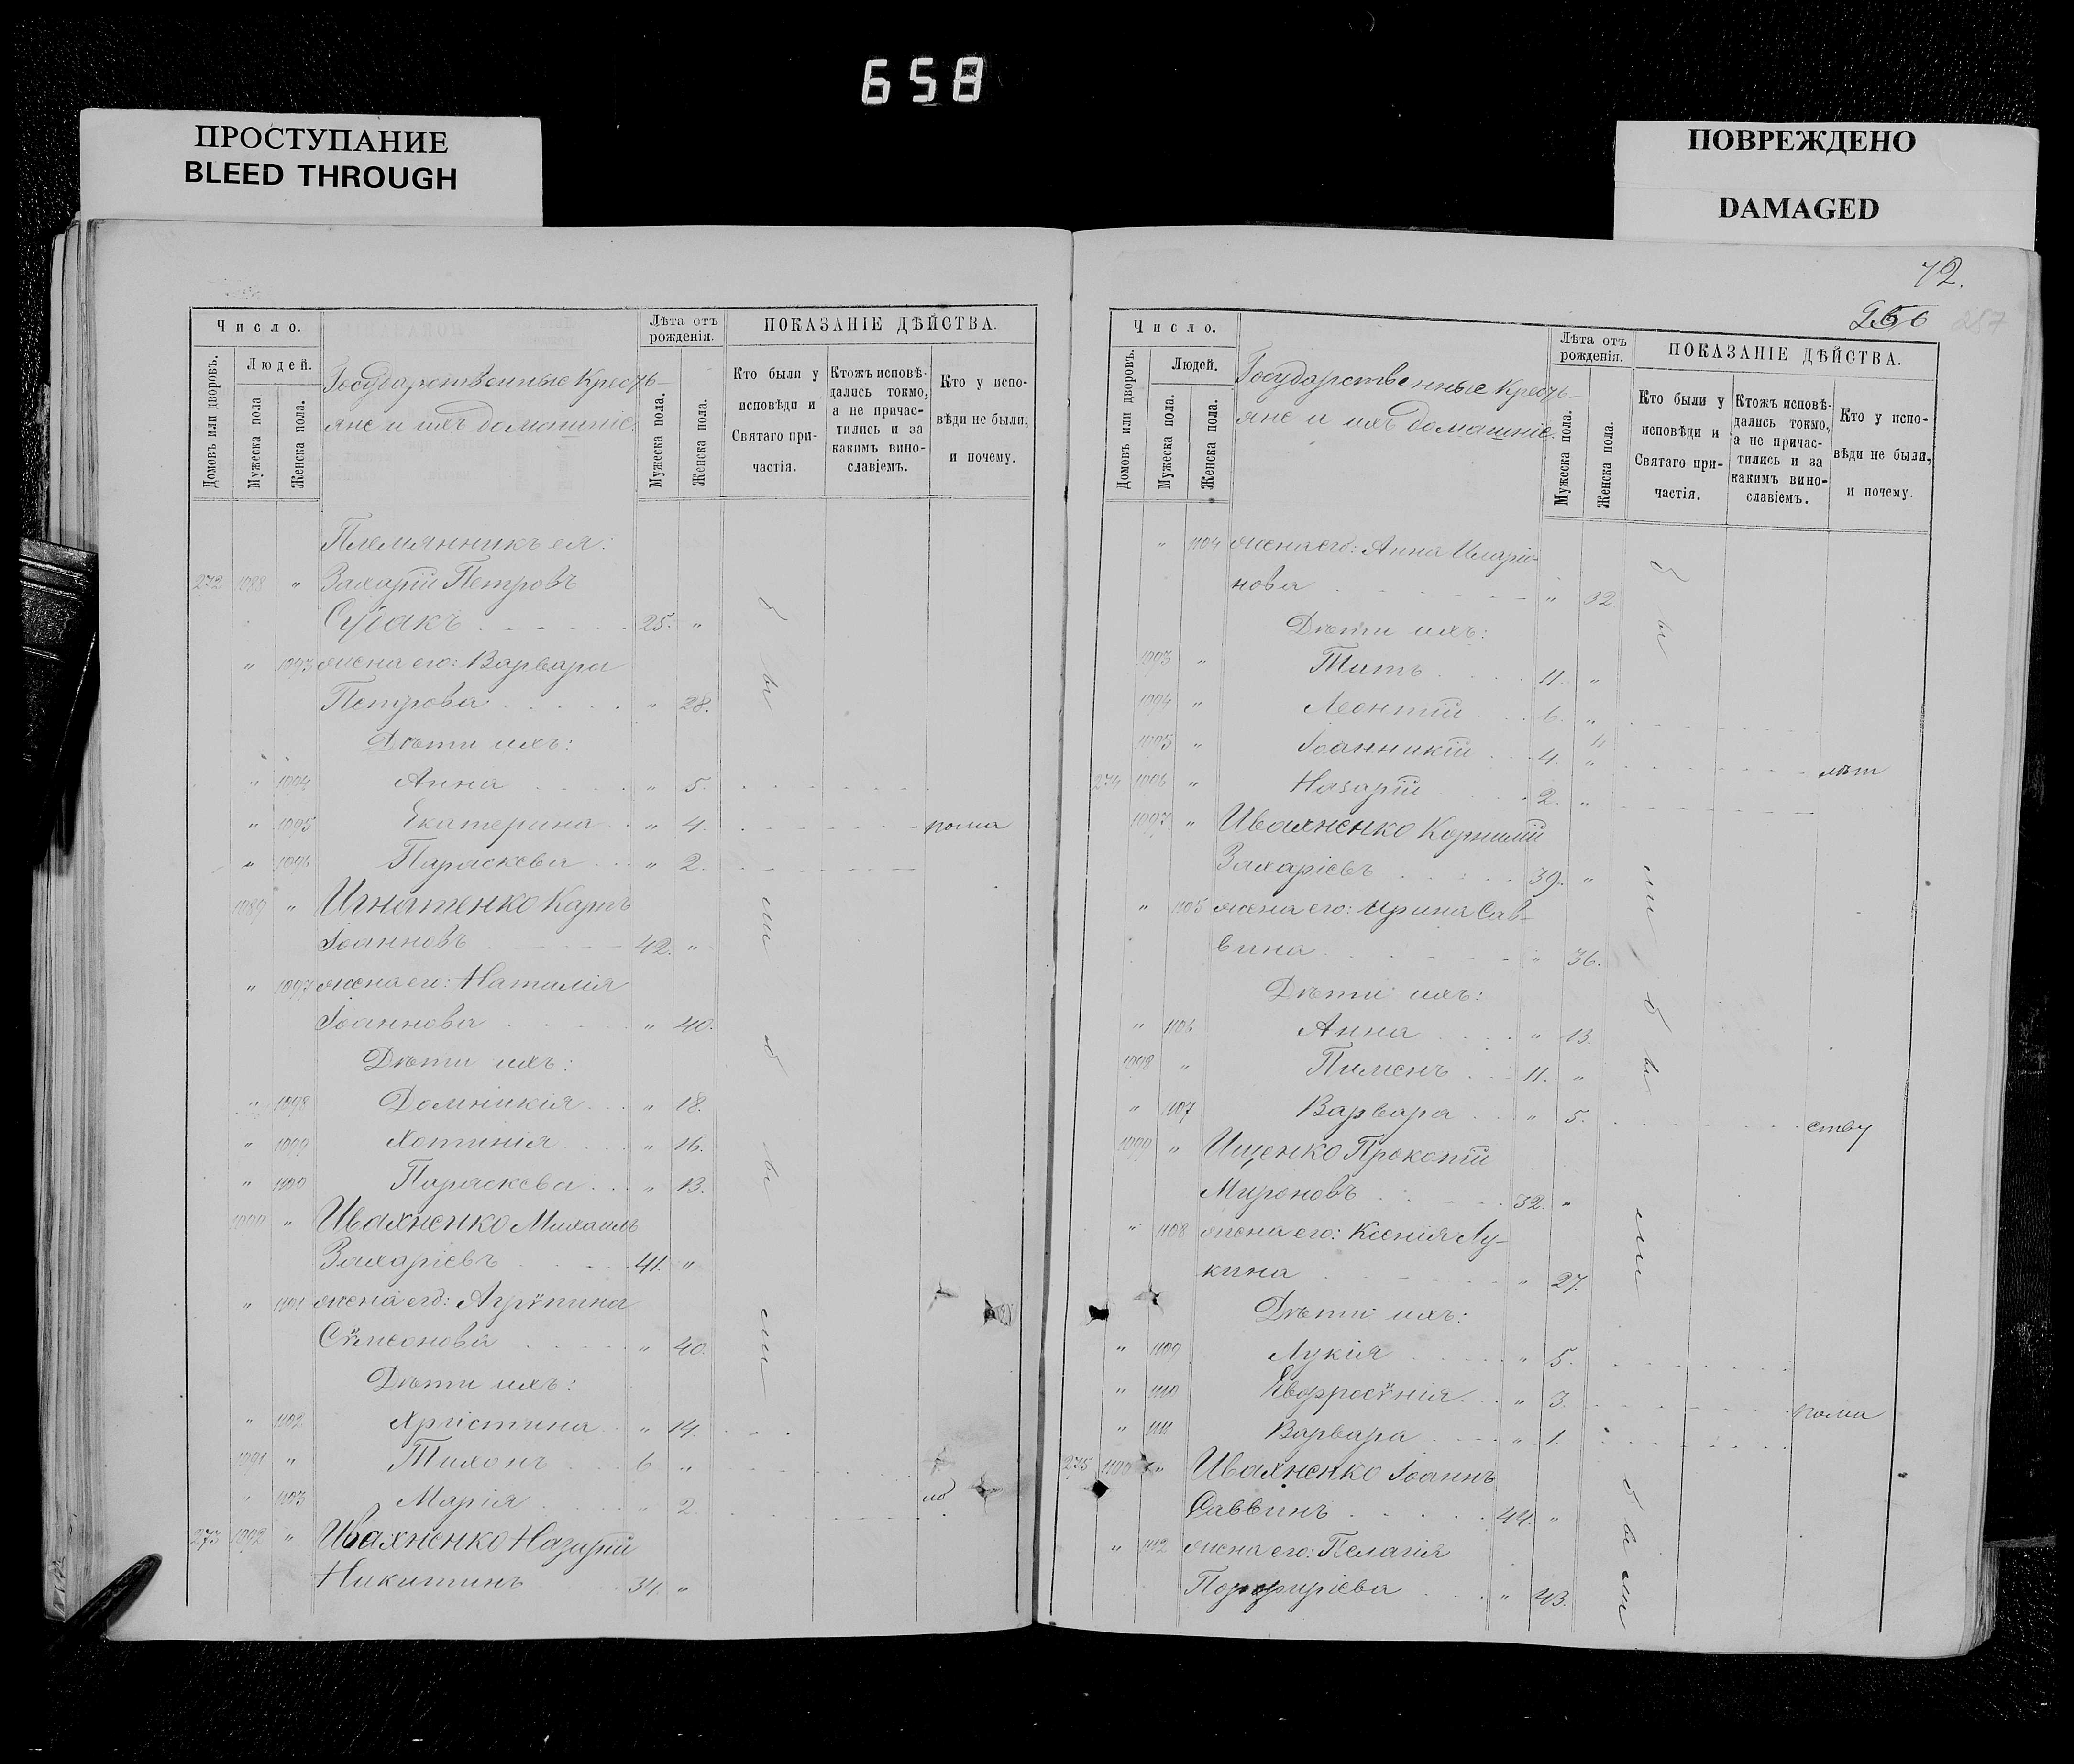 658
ПРОСТУПАНИЕ
BLEED THROUGH
ПОВРЕЖДЕНО
DAMAGED
Число.
Людей.
Домовъ или дворовъ.
Мужеска пола
Женска пола.
Государственные Кресть-
яне и ихъ домашніе.
Лѣта отъ
рожденія.
Мужеска пола.
Женска пола.
ПОКАЗАНІЕ ДѢЙСТВА.
Кто были у
исповѣди и
Святаго при-
частія.
Ктожъ исповѣ-
дались токмо,
а не причас-
тились и за
какимъ вино-
славіемъ.
Кто у испо-
вѣди не были,
и почему.
Племянникъ ея:
272 1088 " Захарій Петровъ
Судакъ 25. "
" 1093 жена его: Варвара
Петрова " 28.
Дѣти ихъ:
" 1094 Анна " 5.
" 1095 Екатерина " 4. по ма
" 1096 Параскева " 2.
1089 " Игнатенко Карпъ
Іоанновъ 42. "
" 1097 жена его: Наталія
Іоаннова " 40.
Дѣти ихъ:
" 1098 Домникія " 18.
" 1099 Хотинія " 16.
" 1100 Параскева " 13.
1090 " Ивахненко Михаилъ
Захаріевъ 41. "
" 1101 жена его: Агрѵпина
Сѵмеонова " 40.
Дѣти ихъ:
" 1102 Христина " 14.
1091 " Тихонъ 6 "
" 1103 Марія " 2 ло
273 1092 " Ивахненко Назарій
Никитинъ 34 "
бы
ли
бы
ли
72.
256
257
Число.
Людей.
Домовъ или дворовъ.
Мужеска пола.
Женска пола.
Государственные Кресть-
яне и ихъ домашніе.
Лѣта отъ
рожденія.
Мужеска пола.
Женска пола.
ПОКАЗАНІЕ ДѢЙСТВА.
Кто были у
исповѣди и
Святаго при-
частія.
Ктожъ исповѣ-
дались токмо,
а не причас-
тились и за
какимъ вино-
славіемъ.
Кто у испо-
вѣди не были,
и почему.
" 1104 жена его: Анна Иларіо-
нова " 32.
Дѣти ихъ:
1093 " Титъ 11. "
1094 " Леонтій 6. "
1095 " Іоанникій 4. " лѣт
274 1096 " Назарій 2. "
1097 " Ивахненко Корнилій
Захаріевъ 39. "
" 1105 жена его: Ирина Сав-
вина " 36.
Дѣти ихъ:
" 1106 Анна " 13.
1098 " Пименъ 11. "
" 1107 Варвара " 5. ству
1099 " Ищенко Прокопій
Мироновъ 32. "
" 1108 жена его: Ксенія Лу-
кина " 27.
Дѣти ихъ:
" 1109 Лукія " 5.
" 1110 Евфросѵнія " 3. по ма
" 1111 Варвара " 1.
275 1100 " Ивахненко Іоаннъ
Саввинъ 44. "
" 1112 жена его: Пелагія
Порфиріева " 43.
бы
ли
бы
ли
были